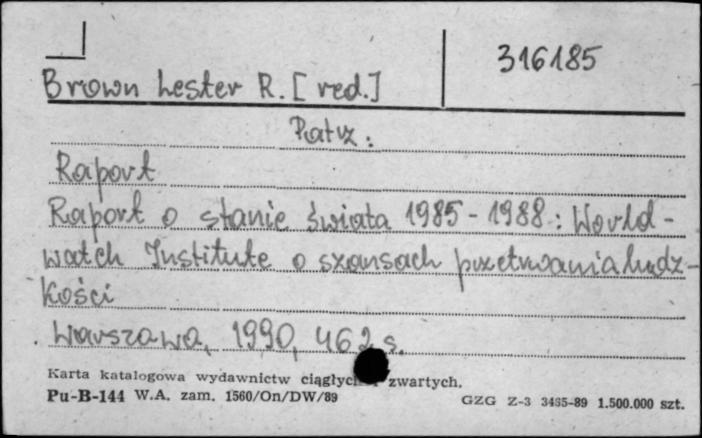 316185
Brown Lester R. [red.]
Patrz:
Raport
Raport o stanie świata 1985-1988: World-
watch Institute o szansach przetrwania ludz-
kości
Warszawa, 1990, 462 s.
Karta katalogowa wydawnictw zwartych.
Pu-B-144 W.A. zam. 1560/On/DW/89
GZG Z-3 3485-89 1.500.000 szt.